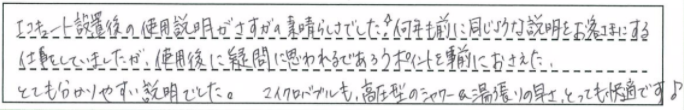 エコキュート設置後の使用説明がさすがの素晴らしさでした!何年も前に同じような説明をお客さまにする
仕事をしていましたが、使用後に疑問に思われるであろうポイントを事前におさえた、
とても分かりやすい説明でした。 マイクロバブルも、高圧型のシャワー&湯張りの早さ、とっても快適です♪